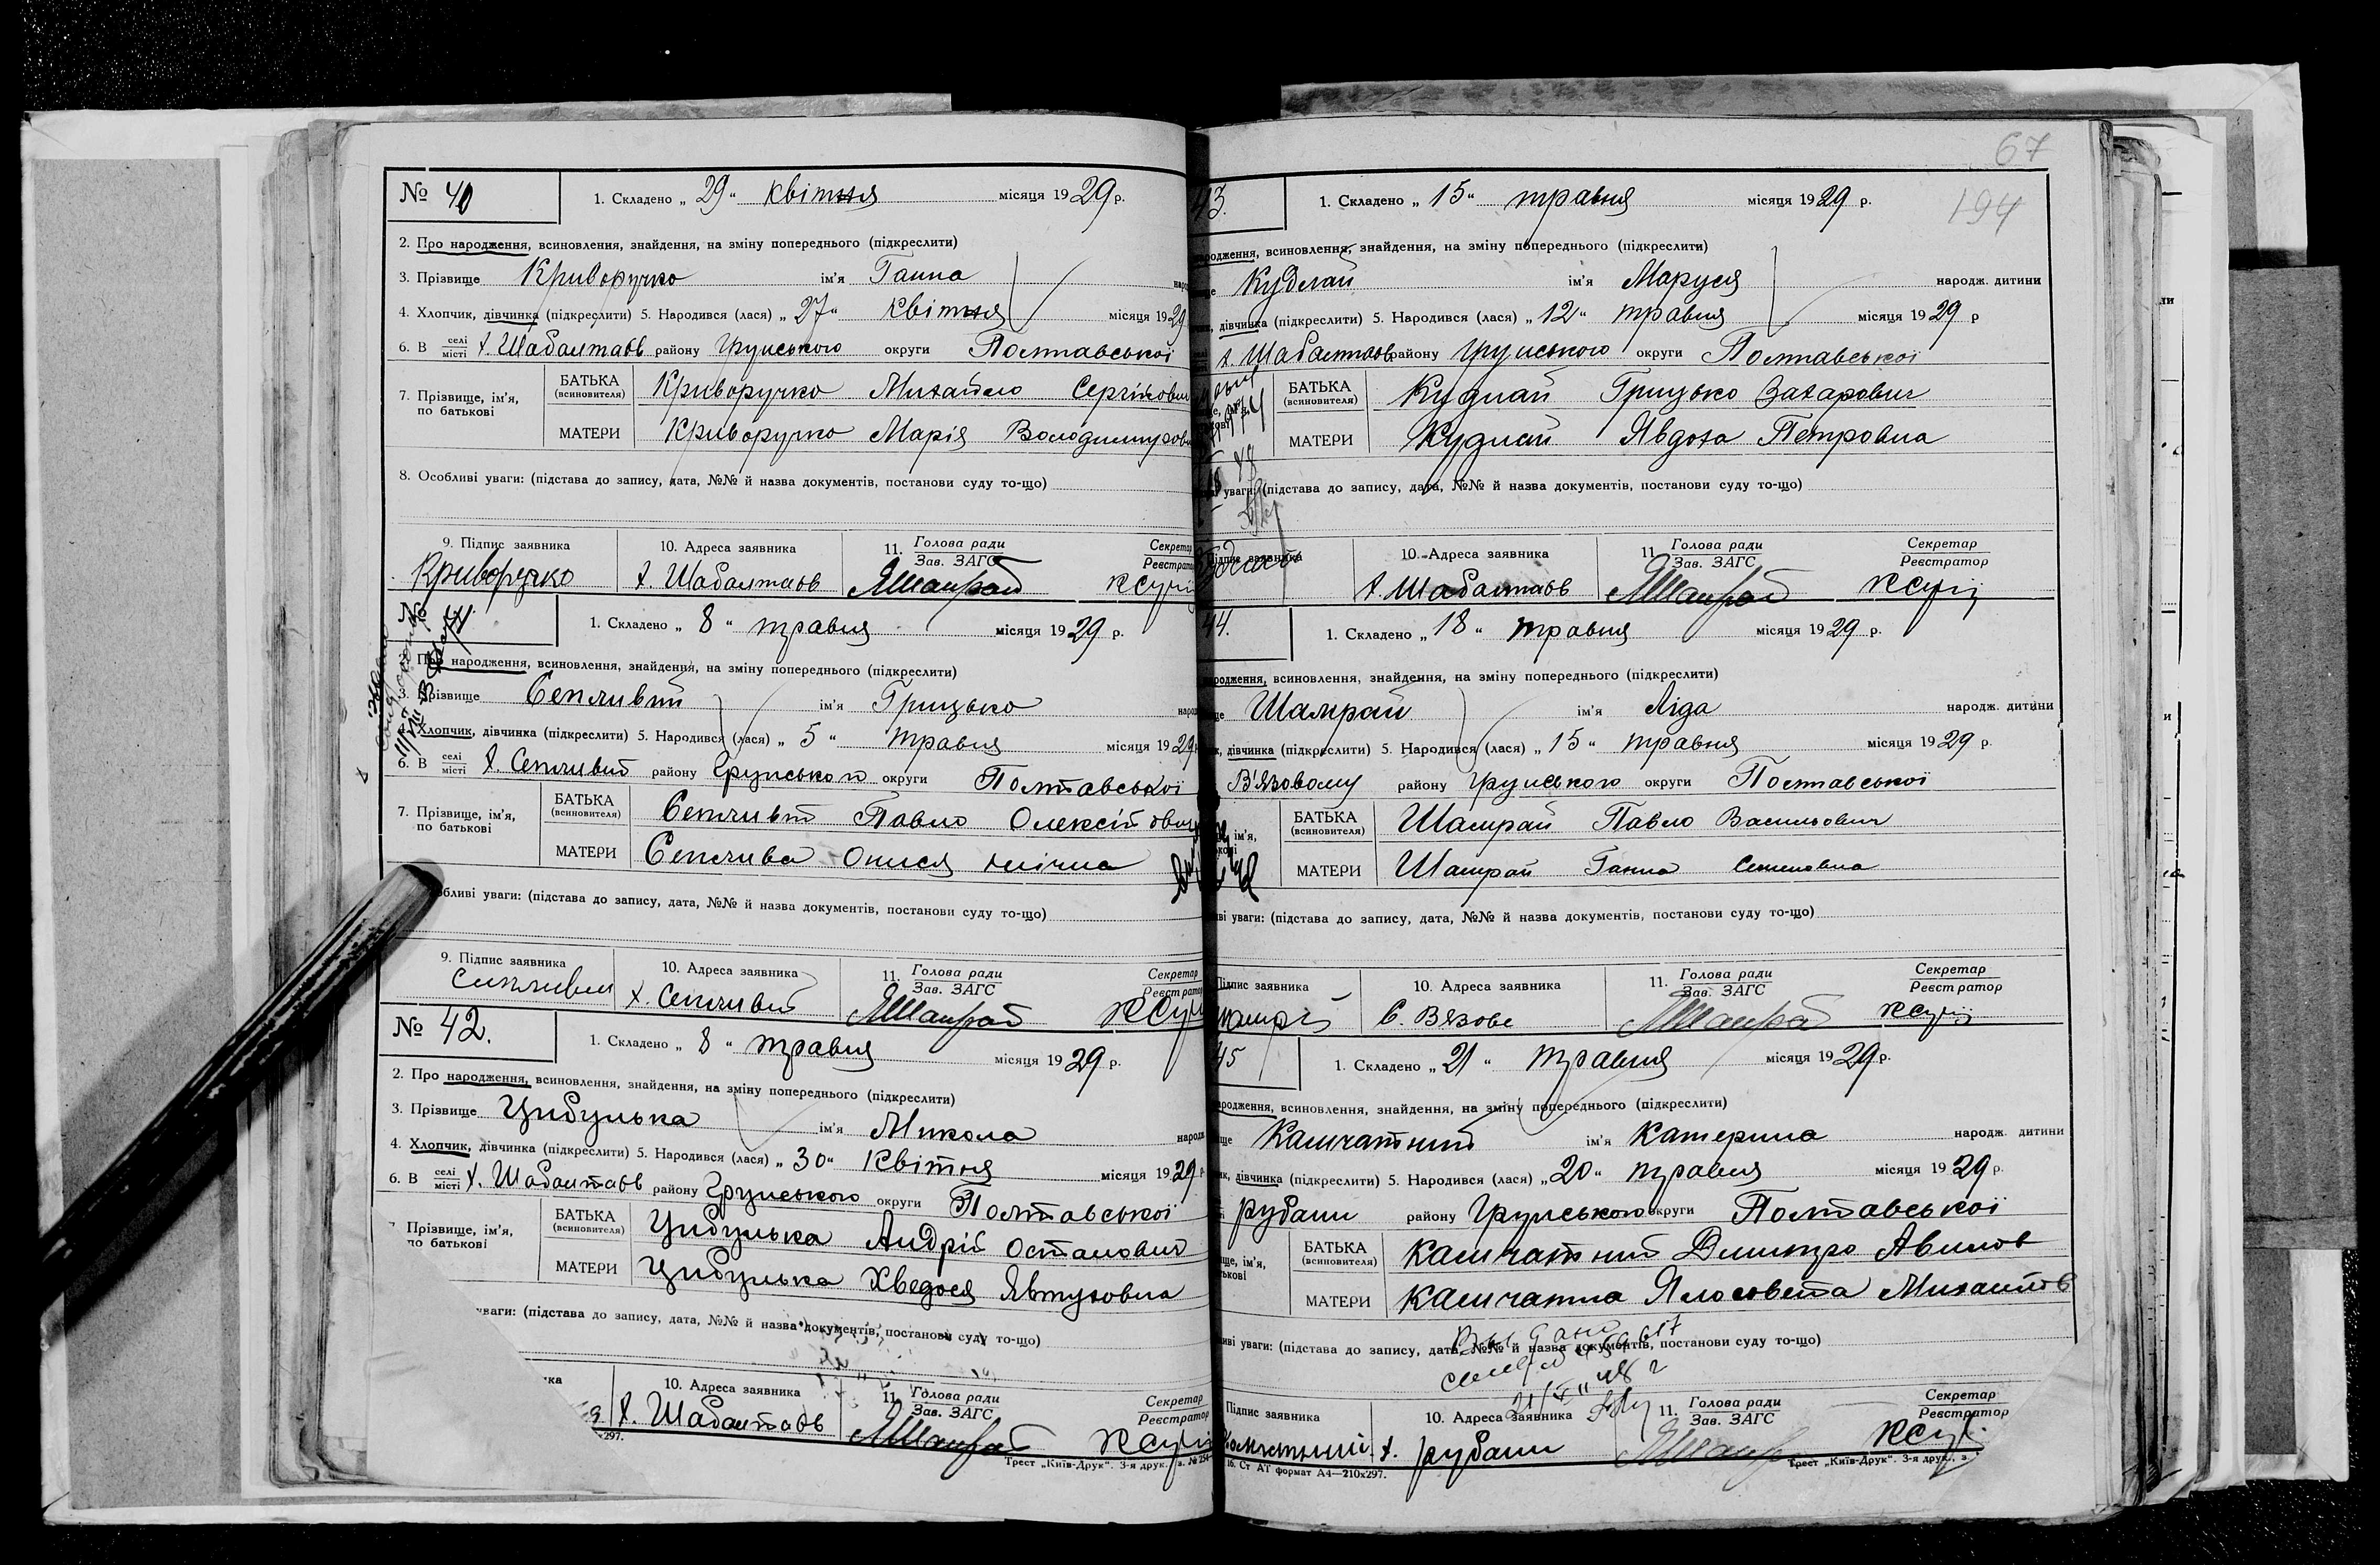 № 40
1. Складено „ 29 “ квітня місяця 1929 р.
2. Про народження, всиновлення, знайдення, на зміну попереднього (підкреслити)
3. Прізвище Криворучко ім'я Ганна
4. Хлопчик, дівчинка (підкреслити) 5. Народився (лася) „ 27 “ квітня місяця 1929
6. В селі/місті х. Шабалтаїв району Грунського округи Полтавської
7. Прізвище, ім'я, по батькові
БАТЬКА (всиновителя) Криворучко Михайло Сергійович
МАТЕРИ Криворучко Марія Володимировн
8. Особливі уваги: (підстава до запису, дата, №№ й назва документів, постанови суду то-що)
9. Підпис заявника 10. Адреса заявника 11. Голова ради/Зав. ЗАГС Секретар/Реєстратор
Криворучко х. Шабалтаїв
№ 41
1. Складено „ 8 “ травня місяця 1929 р.
2. Про народження, всиновлення, знайдення, на зміну попереднього (підкреслити)
3. Прізвище Сепчивий ім'я Грицько
Хлопчик, дівчинка (підкреслити) 5. Народився (лася) „ 5 “ травня місяця 1929
6. В селі/місті х. Сепчивий району Грунського округи Полтавської
7. Прізвище, ім'я, по батькові
БАТЬКА (всиновителя) Сепчивий Павло Олексійович
МАТЕРИ Сепчива Онися
обливі уваги: (підстава до запису, дата, №№ й назва документів, постанови суду то-що)
9. Підпис заявника 10. Адреса заявника 11. Голова ради/Зав. ЗАГС Секретар/Реєстратор
х. Сепчивий
№ 42.
1. Складено „ 8 “ травня місяця 1929 р.
2. Про народження, всиновлення, знайдення, на зміну попереднього (підкреслити)
3. Прізвище Цибулька ім'я Микола
4. Хлопчик, дівчинка (підкреслити) 5. Народився (лася) „ 30 “ квітня місяця 1929
6. В селі/місті х. Шабалтаїв району Грунського округи Полтавської
Прізвище, ім'я, по батькові
БАТЬКА (всиновителя) Цибулька Андрій Остапович
МАТЕРИ Цибулька Хведося Явтуховна
уваги: (підстава до запису, дата, №№ й назва документів, постанови суду то-що)
10. Адреса заявника 11. Голова ради/Зав. ЗАГС Секретар/Реєстратор
х. Шабалтаїв
Трест „Київ-Друк“. 3-я друк.
67
194
43.
1. Складено „ 15 “ травня місяця 1929 р.
ародження, всиновлення, знайдення, на зміну попереднього (підкреслити)
Кудлай ім'я Маруся народж. дитини
дівчинка (підкреслити) 5. Народився (лася) „ 12 “ травня місяця 1929 р
х. Шабалтаїв району Грунського округи Полтавської
БАТЬКА (всиновителя) Кудлай Грицько Захарович
МАТЕРИ Кудлай Явдоха Петровна
уваги: (підстава до запису, дата, №№ й назва документів, постанови суду то-що)
Підпис заявника 10. Адреса заявника 11. Голова ради/Зав. ЗАГС Секретар/Реєстратор
х. Шабалтаїв
44.
1. Складено „ 18 “ травня місяця 1929 р.
ародження, всиновлення, знайдення, на зміну попереднього (підкреслити)
Шамрай ім'я Ліда народж. дитини
дівчинка (підкреслити) 5. Народився (лася) „ 15 “ травня місяця 1929 р.
В'язовому району Грунського округи Полтавської
БАТЬКА (всиновителя) Шамрай Павло Васильович
МАТЕРИ Шамрай Ганна Семеновна
уваги: (підстава до запису, дата, №№ й назва документів, постанови суду то-що)
Підпис заявника 10. Адреса заявника 11. Голова ради/Зав. ЗАГС Секретар/Реєстратор
С. Вязове
45
1. Складено „ 21 “ травня місяця 1929 р.
ародження, всиновлення, знайдення, на зміну попереднього (підкреслити)
Камчатний ім'я Катерина народж. дитини
дівчинка (підкреслити) 5. Народився (лася) „ 20 “ травня місяця 1929 р.
рубани району Грунського округи Полтавської
БАТЬКА (всиновителя) Камчатний Дмитро Авилов
МАТЕРИ Камчатна Ялосовета Михайлов
уваги: (підстава до запису, дата, №№ й назва документів, постанови суду то-що)
Підпис заявника 10. Адреса заявника 11. Голова ради/Зав. ЗАГС Секретар/Реєстратор
Камчатний х. рубани
16. Ст АТ формат А4—210х297.
Трест „Київ-Друк“. 3-я друк.